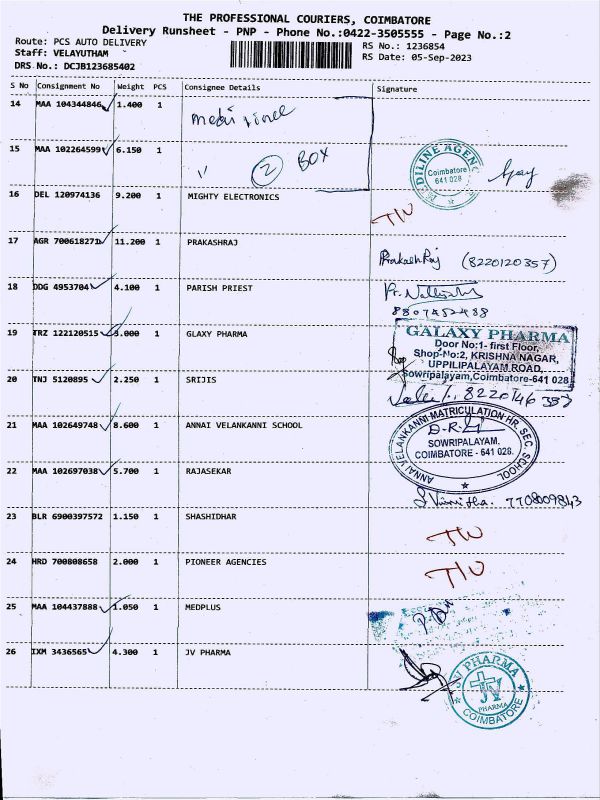 THE PROFESSIONAL COURIERS, COIMBATORE
Delivery Runsheet - PNP - Phone No.:0422-3505555 - Page No.:2
Route: PCS AUTO DELIVERY RS No.: 1236854
Staff: VELAYUTHAM RS Date: 05-Sep-2023
DRS No.: DCJB123685402
S No Consignment No Weight PCS Consignee Details Signature
14 MAA 104344846 1.400 1
15 MAA 102264599 6.150 1 " 2 BOX
MEDILINE AGEN
Coimbatore
641 028
16 DEL 120974136 9.200 1 MIGHTY ELECTRONICS
17 AGR 700618271 11.200 1 PRAKASHRAJ PrakashRaj (8220120357)
18 DDG 4953704 4.100 1 PARISH PRIEST
19 TRZ 122120515 3.000 1 GLAXY PHARMA
GALAXY PHARMA
Door No:1- first Floor,
Shop-No:2, KRISHNA NAGAR,
UPPILIPALAYAM ROAD,
Sowripalayam,Coimbatore-641 028
20 TNJ 5120895 2.250 1 SRIJIS
21 MAA 102649748 8.600 1 ANNAI VELANKANNI SCHOOL
ANNAI VELANKANNI MATRICULATION HR. SEC. SCHOOL
SOWRIPALAYAM,
COIMBATORE - 641 028.
22 MAA 102697038 5.700 1 RAJASEKAR
23 BLR 6900397572 1.150 1 SHASHIDHAR
24 HRD 700808658 2.000 1 PIONEER AGENCIES
25 MAA 104437888 1.050 1 MEDPLUS
26 IXM 3436565 4.300 1 JV PHARMA
JV PHARMA
JV
PHARMA
COIMBATORE